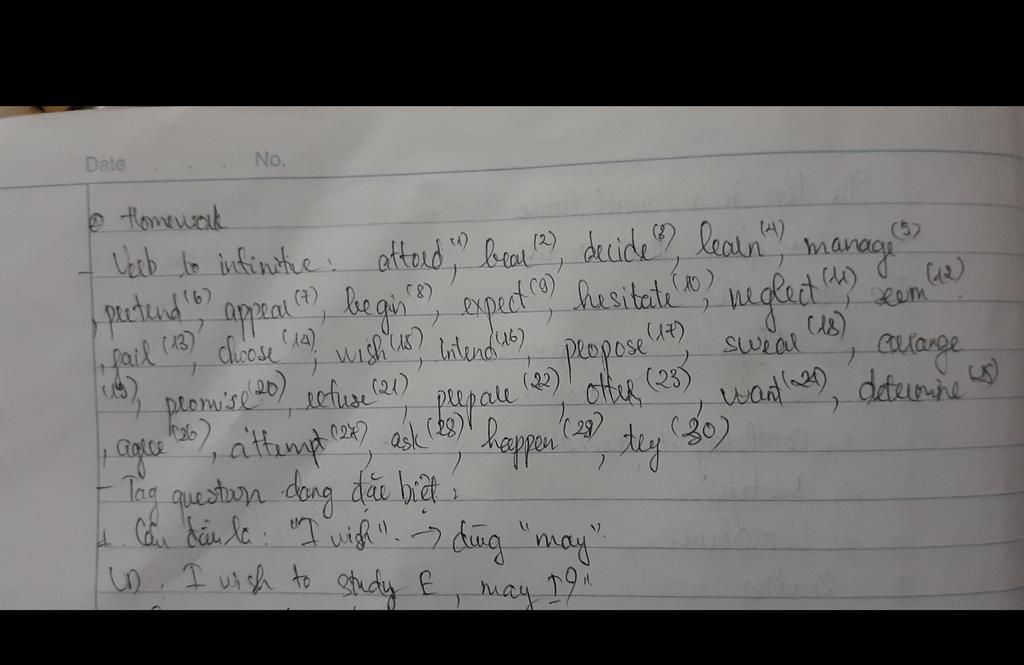 Date . . . No.
Homework
- Verb to infinitive: afford (1), bear (2), decide (3), learn (4), manage (5)
, pretend (6), appear (7), begin (8), expect (9), hesitate (10), neglect (11), seem (12)
, fail (13), choose (14), wish (15), intend (16), propose (17), swear (18), arrange
(19), promise (20), refuse (21), prepare (22), offer (23), want (24), determine (25)
, agree (26), attempt (27), ask (28), happen (29), try (30)
- Tag question dạng đặc biệt:
1. Câu đầu là: "I wish" → dùng "may"
VD. I wish to study E, may I?"